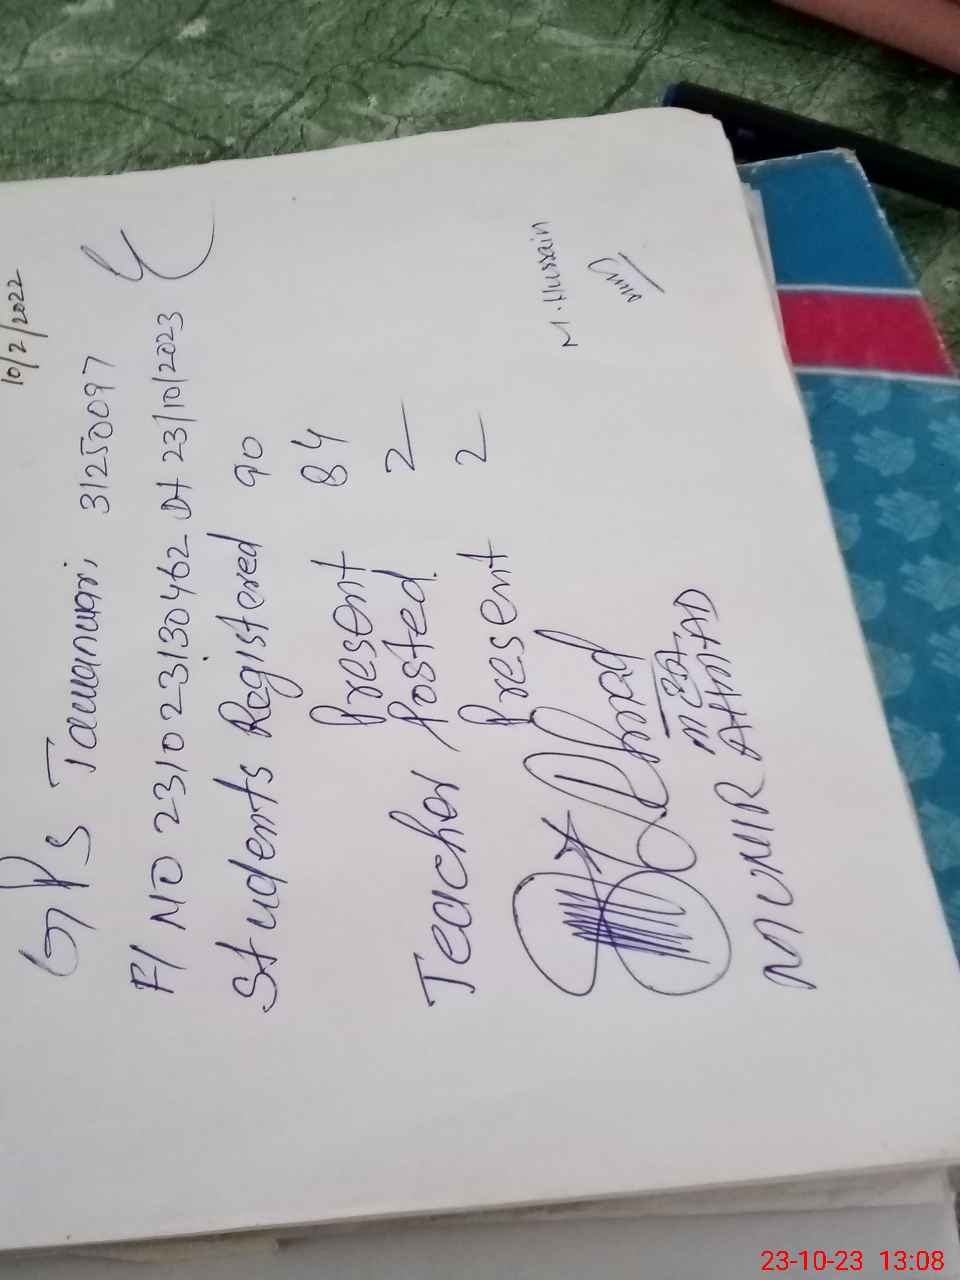 10/2/2022
GPS Tawanari, 31250097
F/ NO 231023130462 Dt 23/10/2023
Students Registered 90
Present 84
Teacher Posted 2
Present 2
M. Hussain
Ahmad
MEA
MUNIR AHMAD
23-10-23 13:08